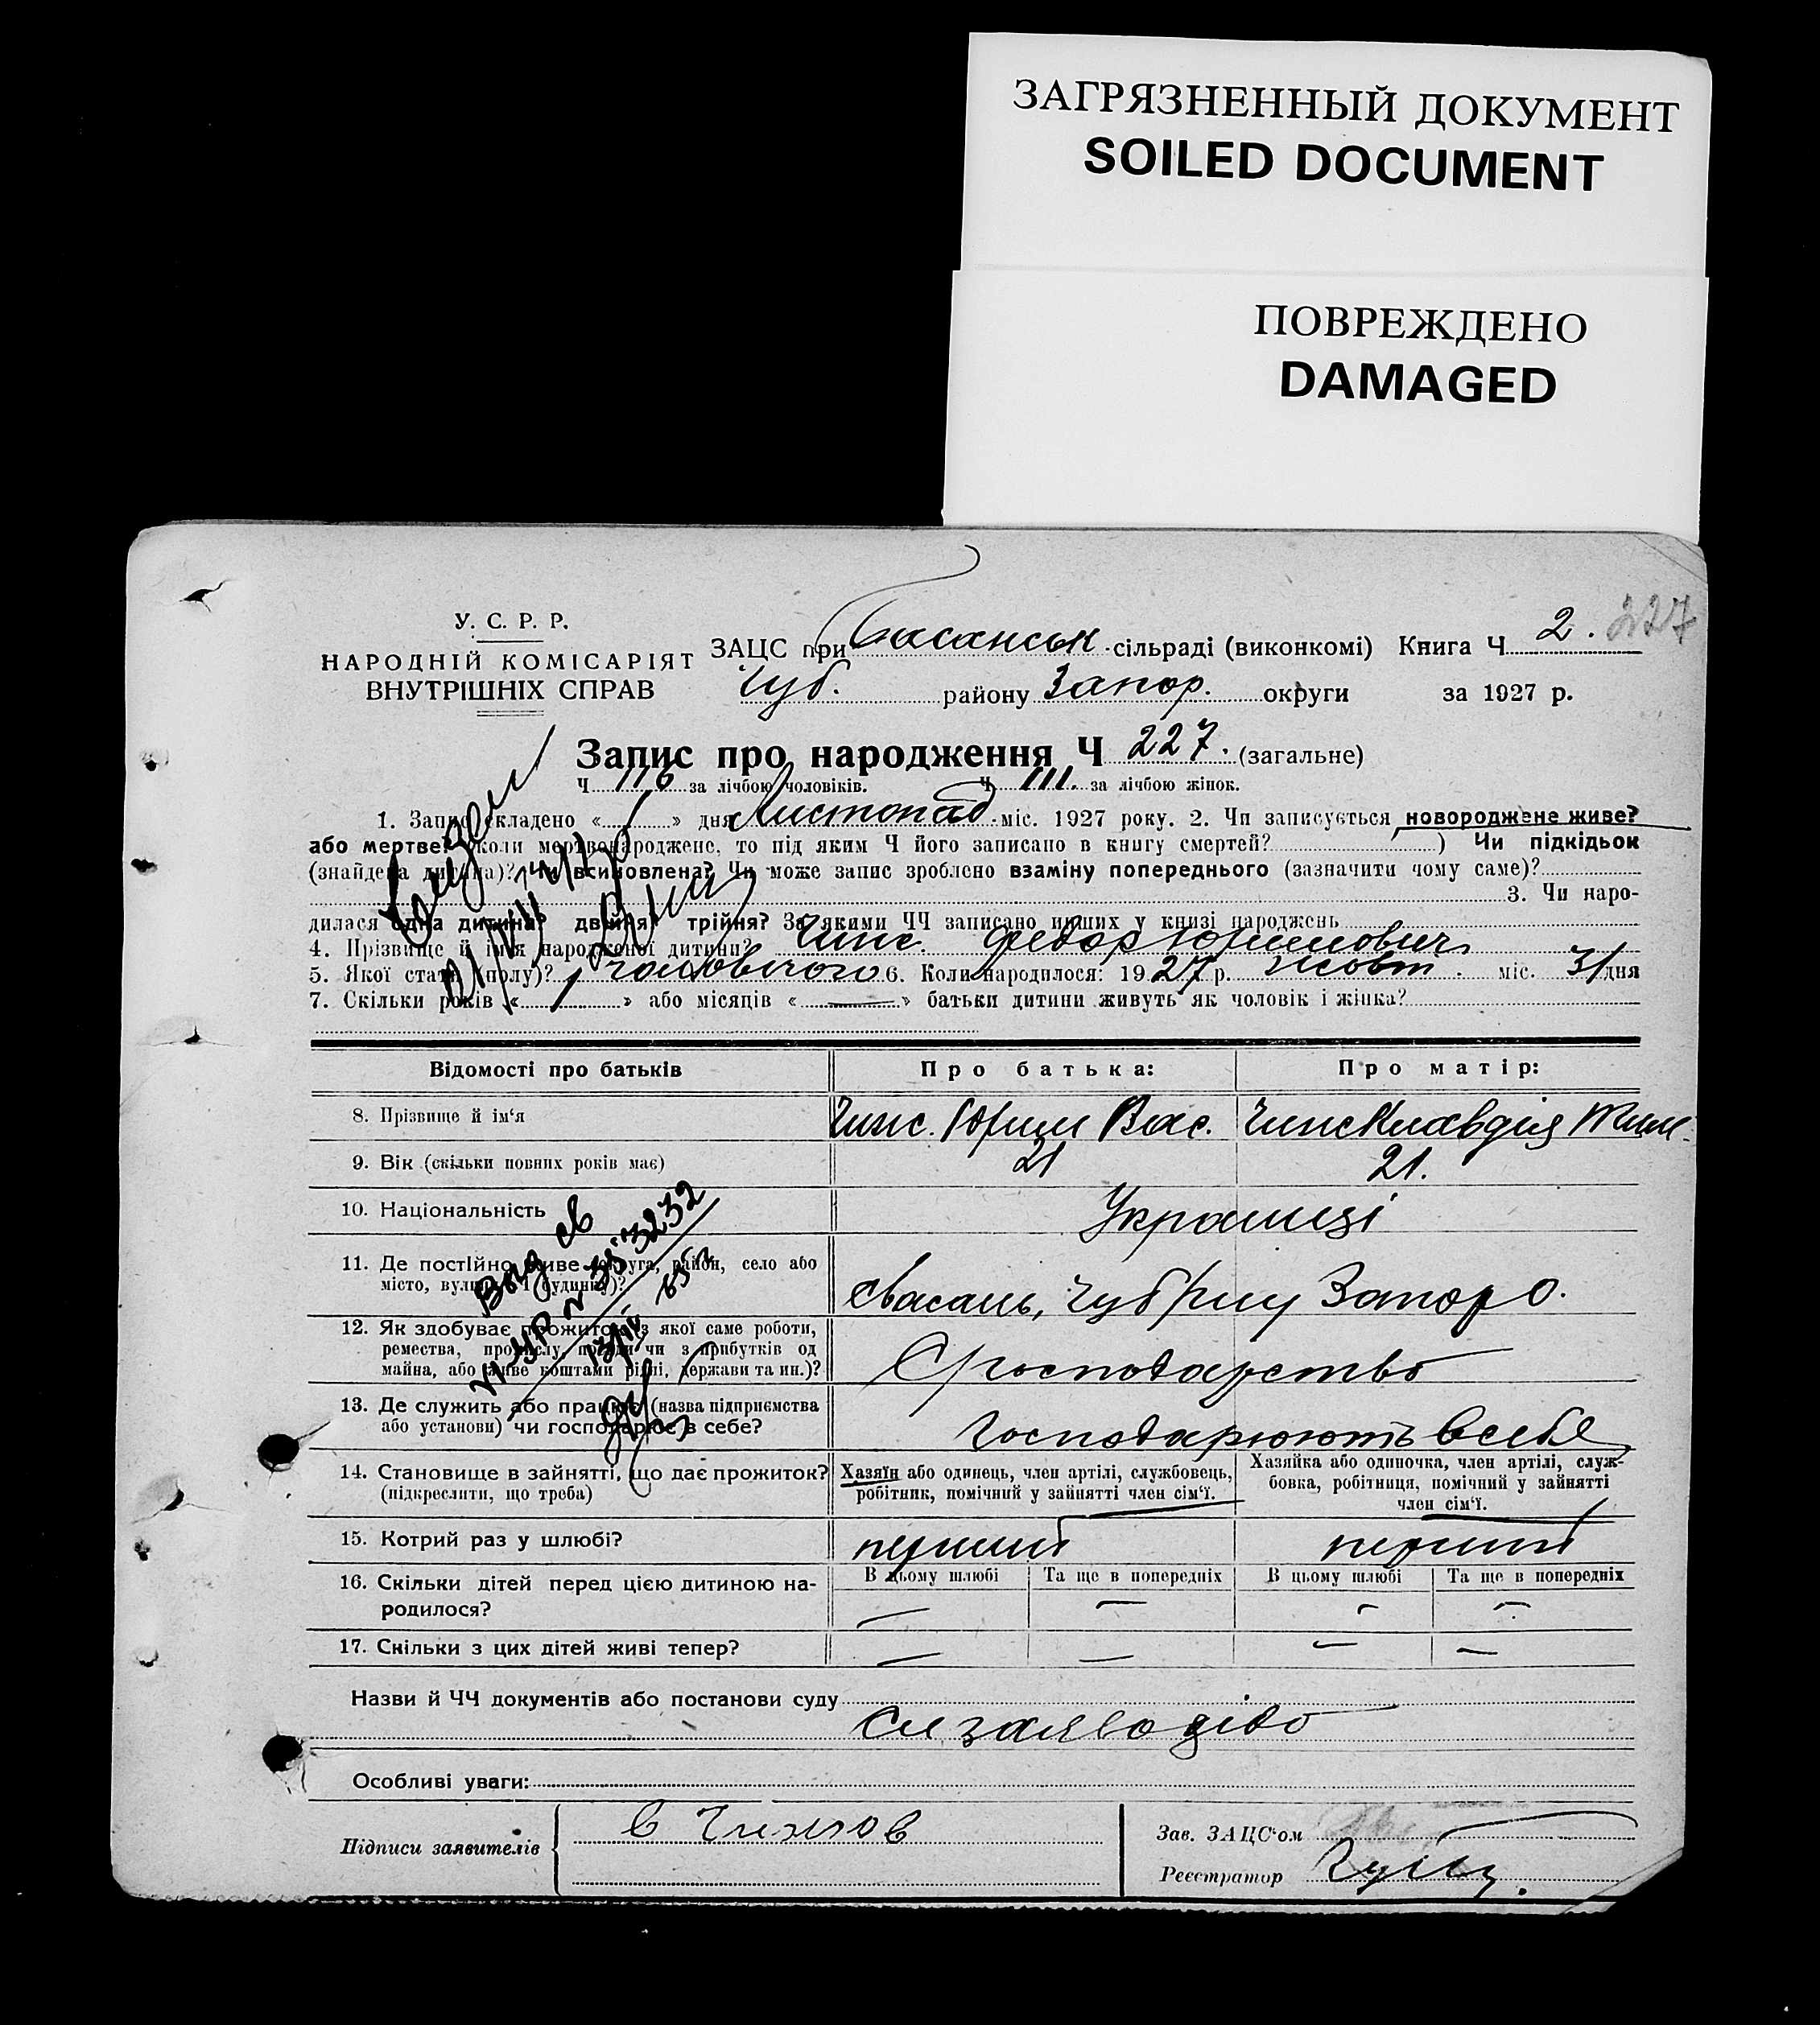 ЗАГРЯЗНЕННЫЙ ДОКУМЕНТ
SOILED DOCUMENT
ПОВРЕЖДЕНО
DAMAGED
227
У. С. Р. Р.
НАРОДНІЙ КОМІСАРІЯТ
ВНУТРІШНІХ СПРАВ
ЗАЦС при Басанськ сільраді (виконкомі) Книга Ч 2.
Чуб. району Запор. округи за 1927 р.
Запис про народження Ч 227. (загальне)
Ч 116 за лічбою чоловіків. Ч 111. за лічбою жінок.
1. Запис складено « » дня Листопад міс. 1927 року. 2. Чи записується новороджене живе?
або мертве? (коли мертвонароджене, то під яким Ч його записано в книгу смертей? ) Чи підкідьок
(знайдена дитина)? Чи всиновлена? Чи може запис зроблено взаміну попереднього (зазначити чому саме)?
3. Чи наро-
дилася одна дитина? двійня? трійня? За якими ЧЧ записано инших у книзі народжень
4. Прізвище й імя народженої дитини? Федор Юхимович
5. Якої стати (полу)? чоловічого 6. Коли народилося: 1927 р. жовт. міс. 31 дня
7. Скільки років « 1 » або місяців « — » батьки дитини живуть як чоловік і жінка?
Відомості про батьків
Про батька:
Про матір:
8. Прізвище й ім‘я
Юхим Вас.
Клавдія
9. Вік (скільки повних років має)
21
21.
10. Національність
Українці
11. Де постійно живе (округа, район, село або
місто, вулиця і будинку)?
Запор о.
12. Як здобуває прожиток (з якої саме роботи,
ремества, промислу, посади чи з прибутків од
майна, або живе коштами рідні, держави та ин.)?
С господарство
13. Де служить або працює (назва підприємства
або установи) чи господарює в себе?
Господарюють в себе
14. Становище в зайнятті, що дає прожиток?
(підкреслити, що треба)
Хазяїн або одинець, член артілі, службовець,
робітник, помічний у зайнятті член сім‘ї.
Хазяйка або одиночка, член артілі, служ-
бовка, робітниця, помічний у зайнятті
член сім‘ї.
15. Котрий раз у шлюбі?
перший
перший
16. Скільки дітей перед цією дитиною на-
родилося?
В цьому шлюбі
Та ще в попередніх
В цьому шлюбі
Та ще в попередніх
— — — —
17. Скільки з цих дітей живі тепер?
— — — —
Назви й ЧЧ документів або постанови суду
Особливі уваги:
Підписи заявителів
Зав. ЗАЦС‘ом
Реєстратор